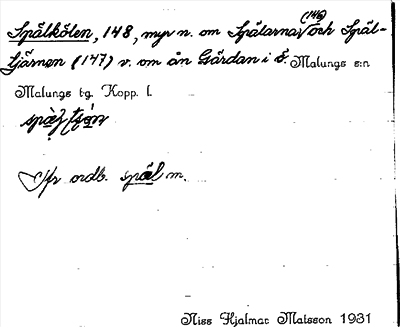 Spålkölen, 148, myr n. om Spålarna (146) och Spål-
tjärnen (147) v. om ån Gärdan i Ö. Malungs s:n
Malungs tg. Kopp. l.
Jfr ordb. spål m.
Niss Hjalmar Matsson 1931